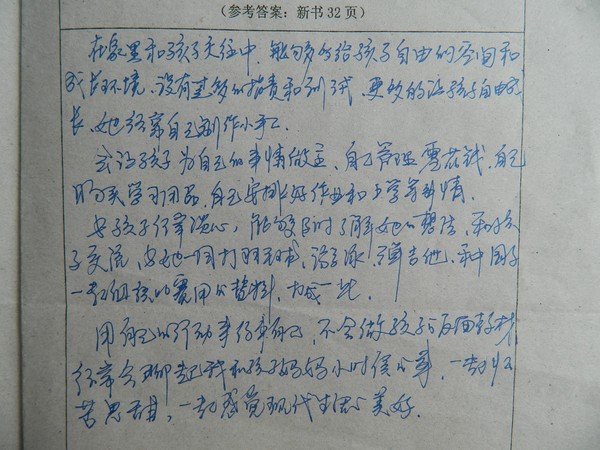 （参考答案：新书32页）
在家里和孩子交往中，能够多的给孩子自由的空间和
成长环境，没有过多的指责和训斥，更多的让孩子自由成
长，她经常自己制作小手工
会让孩子为自己的事情做主，自己管理零花钱，自己
购买学习用品，自己安排好作业和上学等事情．
与孩子经常谈心，能够及时了解她的想法，和孩
子交流，与她一同打羽毛球，游泳，弹吉他，和孩子
一起
用自己的行动来 ，不会做孩子的反面教材
经常会聊起我和孩子妈妈小时候的事，一起忆
苦思甜，一起感觉现代生活的美好．